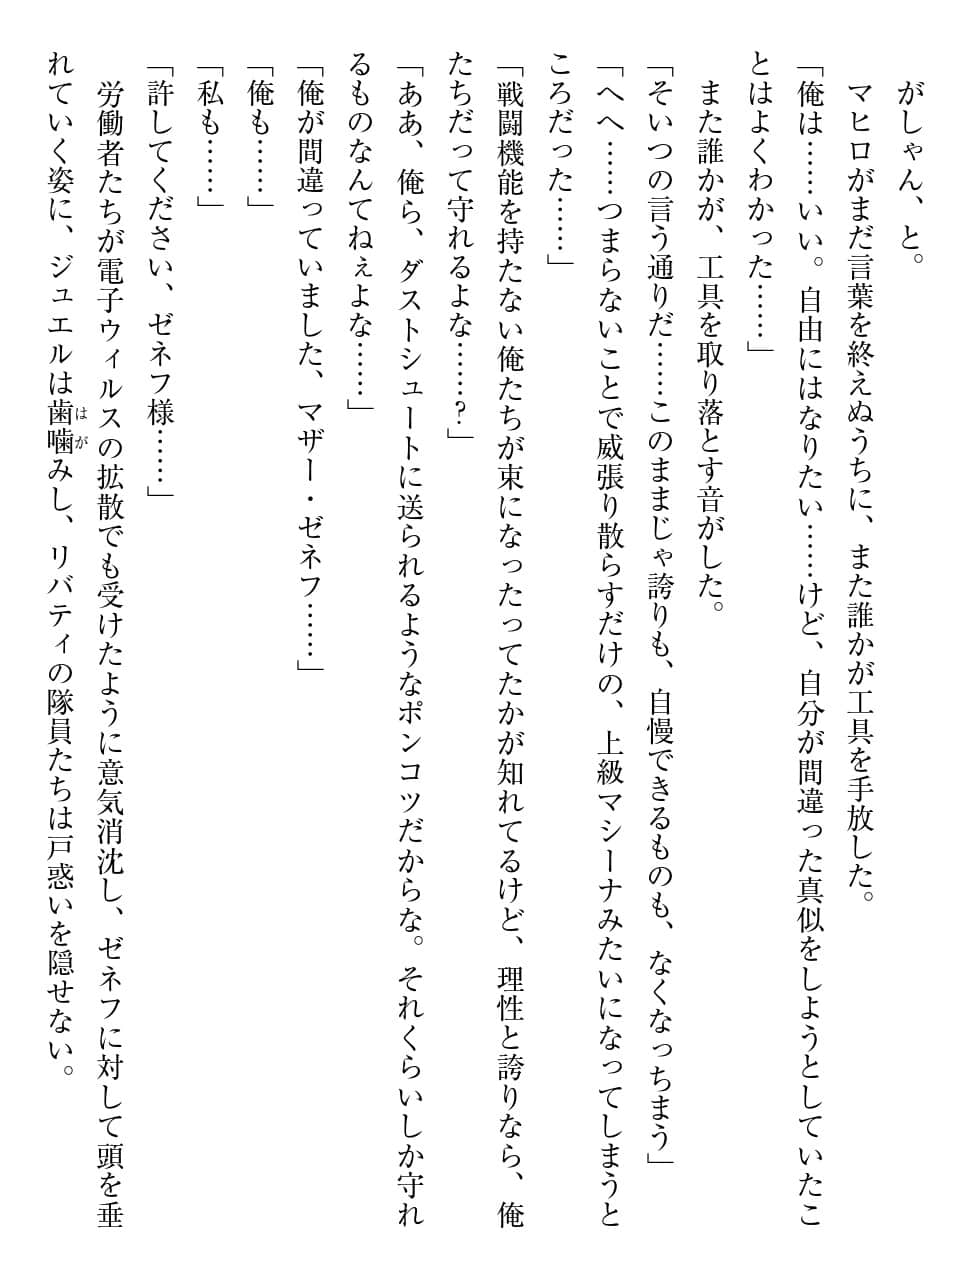 がしゃん、と。
　マヒロがまだ言葉を終えぬうちに、また誰かが工具を手放した。
「俺は……いい。自由にはなりたい……けど、自分が間違った真似をしようとしていたこ
とはよくわかった……」
　また誰かが、工具を取り落とす音がした。
「そいつの言う通りだ……このままじゃ誇りも、自慢できるものも、なくなっちまう」
「へへ……つまらないことで威張り散らすだけの、上級マシーナみたいになってしまうと
ころだった……」
「戦闘機能を持たない俺たちが束になったってたかが知れてるけど、理性と誇りなら、俺
たちだって守れるよな……？」
「ああ、俺ら、ダストシュートに送られるようなポンコツだからな。それくらいしか守れ
るものなんてねぇよな……」
「俺が間違っていました、マザー・ゼネフ……」
「俺も……」
「私も……」
「許してください、ゼネフ様……」
　労働者たちが電子ウィルスの拡散でも受けたように意気消沈し、ゼネフに対して頭を垂
れていく姿に、ジュエルは歯噛みし、リバティの隊員たちは戸惑いを隠せない。
はが